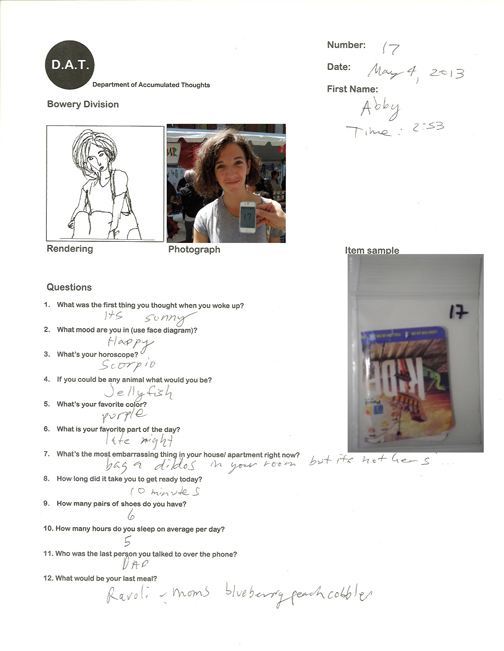 D.A.T.
Department of Accumulated Thoughts
Bowery Division
Number: 17
Date: May 4, 2013
First Name:
Abby
Time: 2:53
Rendering
Photograph
Item sample
17
Questions
1. What was the first thing you thought when you woke up?
Its sunny
2. What mood are you in (use face diagram)?
Happy
3. What's your horoscope?
Scorpio
4. If you could be any animal what would you be?
Jellyfish
5. What's your favorite color?
purple
6. What is your favorite part of the day?
late night
7. What's the most embarrassing thing in your house/ apartment right now?
bag a dildos in your room but its not hers ...
8. How long did it take you to get ready today?
10 minutes
9. How many pairs of shoes do you have?
6
10. How many hours do you sleep on average per day?
5
11. Who was the last person you talked to over the phone?
DAD
12. What would be your last meal?
Ravoli - moms blueberry peach cobbler